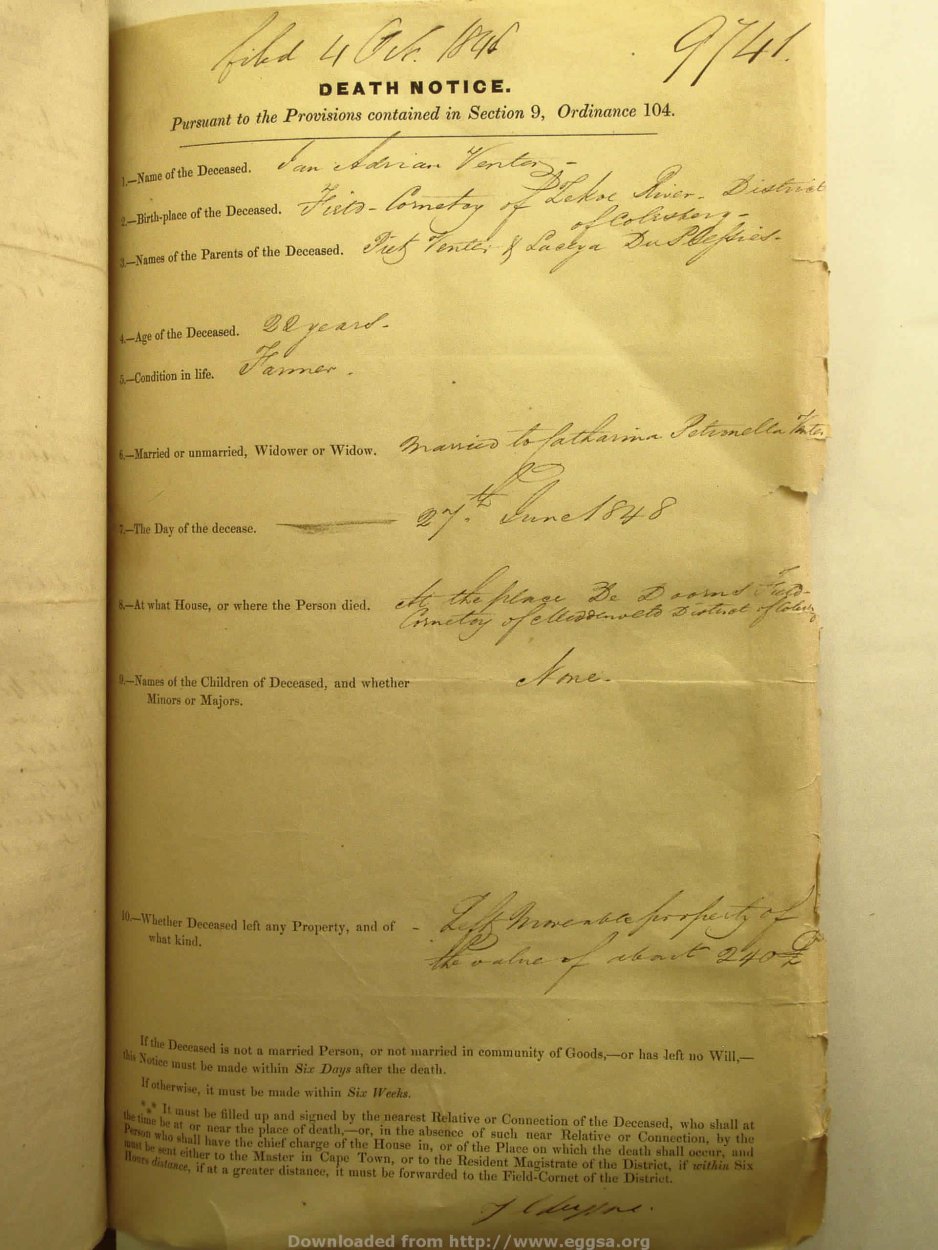 filed 4 Oct. 184
9741.
DEATH NOTICE.
Pursuant to the Provisions contained in Section 9, Ordinance 104.
1.—Name of the Deceased. Jan Adrian Venter -
2.—Birth-place of the Deceased. Field-Cornetcy of Zekoe River - District
of Colesberg -
3.—Names of the Parents of the Deceased. Piet Venter & Du Plessies -
4.—Age of the Deceased. 22 years -
5.—Condition in life. Farmer .
6.—Married or unmarried, Widower or Widow. Married to Catharina Petronella Venter
7.—The Day of the decease. 27th June 1848
8.—At what House, or where the Person died. At the place De Doorns Field-
Cornetcy of Middenveld District of
9.—Names of the Children of Deceased, and whether None -
Minors or Majors.
10.—Whether Deceased left any Property, and of - Left Moveable property of
what kind. the value of about 240 £
If the Deceased is not a married Person, or not married in community of Goods,—or has left no Will,—
this Notice must be made within Six Days after the death.
If otherwise, it must be made within Six Weeks.
*** It must be filled up and signed by the nearest Relative or Connection of the Deceased, who shall at
the time be at or near the place of death,—or, in the absence of such near Relative or Connection, by the
Person who shall have the chief charge of the House in, or of the Place on which the death shall occur, and
must be sent either to the Master in Cape Town, or to the Resident Magistrate of the District, if within Six
Hours distance, if at a greater distance, it must be forwarded to the Field-Cornet of the District.
Downloaded from http://www.eggsa.org